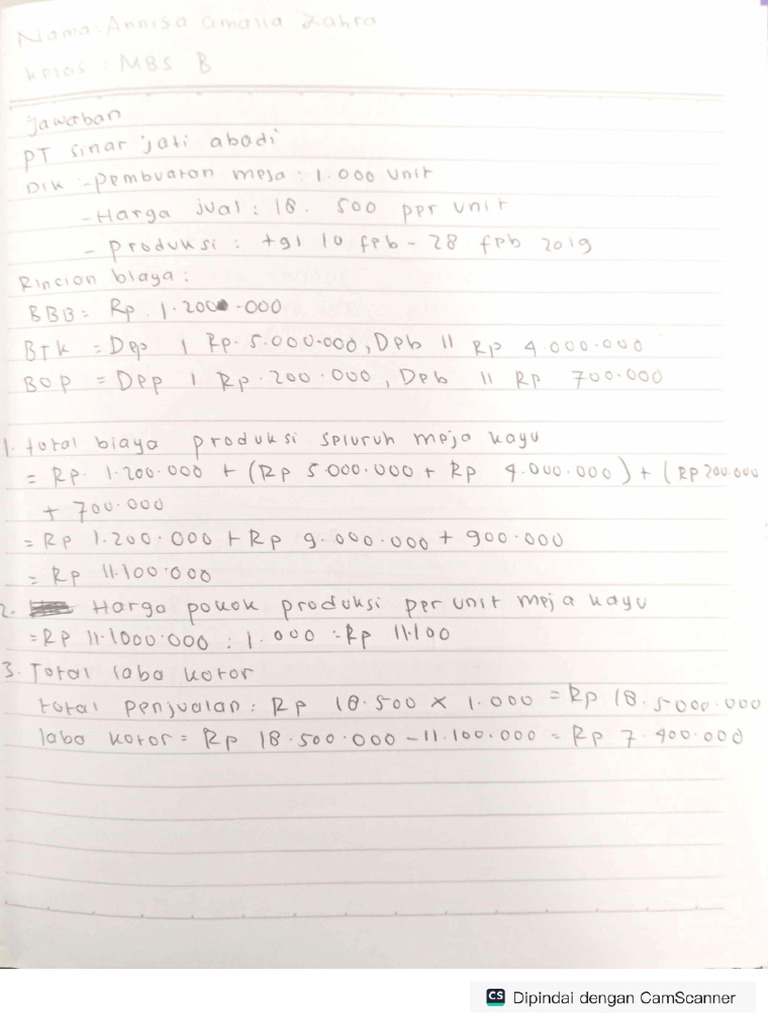 Nama: Annisa amalia Zahra
kelas : MBS B
jawaban
PT sinar jati abadi
Dik :- pembuatan meja : 1.000 unit
- Harga jual : 18. 500 per unit
- produksi : tgl 10 feb - 28 feb 2019
Rincian biaya :
BBB = Rp. 1.200.000
BTK = Dep I Rp. 5.000.000, Deb II Rp 4.000.000
BOP = Dep I Rp. 200.000, Deb II Rp 700.000
1. total biaya produksi seluruh meja kayu
= Rp. 1.200.000 + (Rp 5.000.000 + Rp 4.000.000) + (Rp 200.000
+ 700.000
= Rp 1.200.000 + Rp 9.000.000 + 900.000
= Rp 11.100.000
2. Harga pokok produksi per unit meja kayu
= Rp 11.1000.000 : 1.000 = Rp 11.100
3. Total laba kotor
total penjualan : Rp 18.500 x 1.000 = Rp 18.5000.000
laba kotor = Rp 18.500.000 - 11.100.000 = Rp 7.400.000
CS Dipindai dengan CamScanner